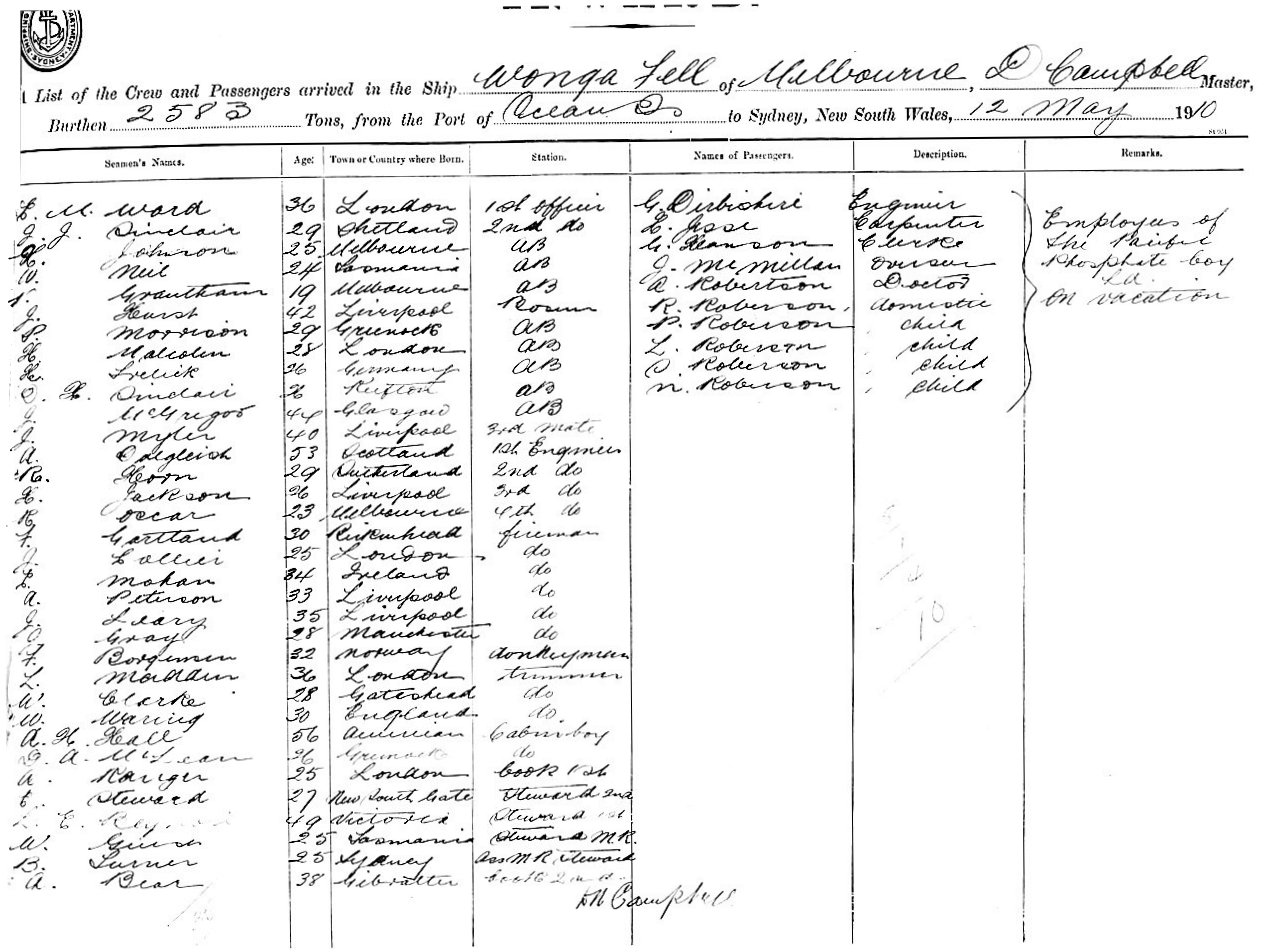 List of the Crew and Passengers arrived in the Ship Wonga Fell of Melbourne, D Campbell Master,
Burthen 2583 Tons, from the Port of Ocean Is to Sydney, New South Wales, 12 May 1910
Seamen's Names. Age: Town or Country where Born. Station. Names of Passengers. Description. Remarks.
E. M. Ward 36 London 1st Officer G. Dirbishire Engineer
J. J. Sinclair 29 Shetland 2nd do E. Jesse Carpenter Employees of
Johnson 25 Melbourne AB G. Hanson Clerke the Pacific
Neil 24 Tasmania AB J. McMillan Overseer Phosphate Coy
Grantham 19 Melbourne AB A. Robertson Doctor Ld
J. Hurst 42 Liverpool Bosun R. Roberson, domestic On vacation
P. Morrison 29 Greenock AB P. Roberson child
H. Malcolm 28 London AB L. Roberson child
26 Germany AB Roberson child
H. Sinclair 26 AB N. Roberson child
J. McGregor 44 Glasgow AB
J. Myler 40 Liverpool 3rd mate
A. Dalgleish 53 Scotland 1st Engineer
R. Horn 29 Sutherland 2nd do
H. Jackson 26 Liverpool 3rd do
R. Oscar 23 Melbourne 4th do
F. Gartland 30 Birkenhead fireman
J. Collier 25 London do
Mohan 34 Ireland do
A. Peterson 33 Liverpool do
J. Leary 35 Liverpool do
Gray 28 Manchester do
F. Borgensen 32 Norway donkeyman
L. Madden 36 London trimmer
W. Clarke 28 Gateshead do
W. Waring 30 England do
A. H. Hall 56 American Cabin boy
D. A. McLean 26 Greenock do
A. Kanger 25 London Cook 1st
Steward 27 New South Gate Steward 2nd
49 Victoria Steward 1st
W. 25 Tasmania Steward M.R.
B. Turner 25 Sydney Ass M R Steward
A. Bear 38 Gibralter Cook 2nd
D Campbell